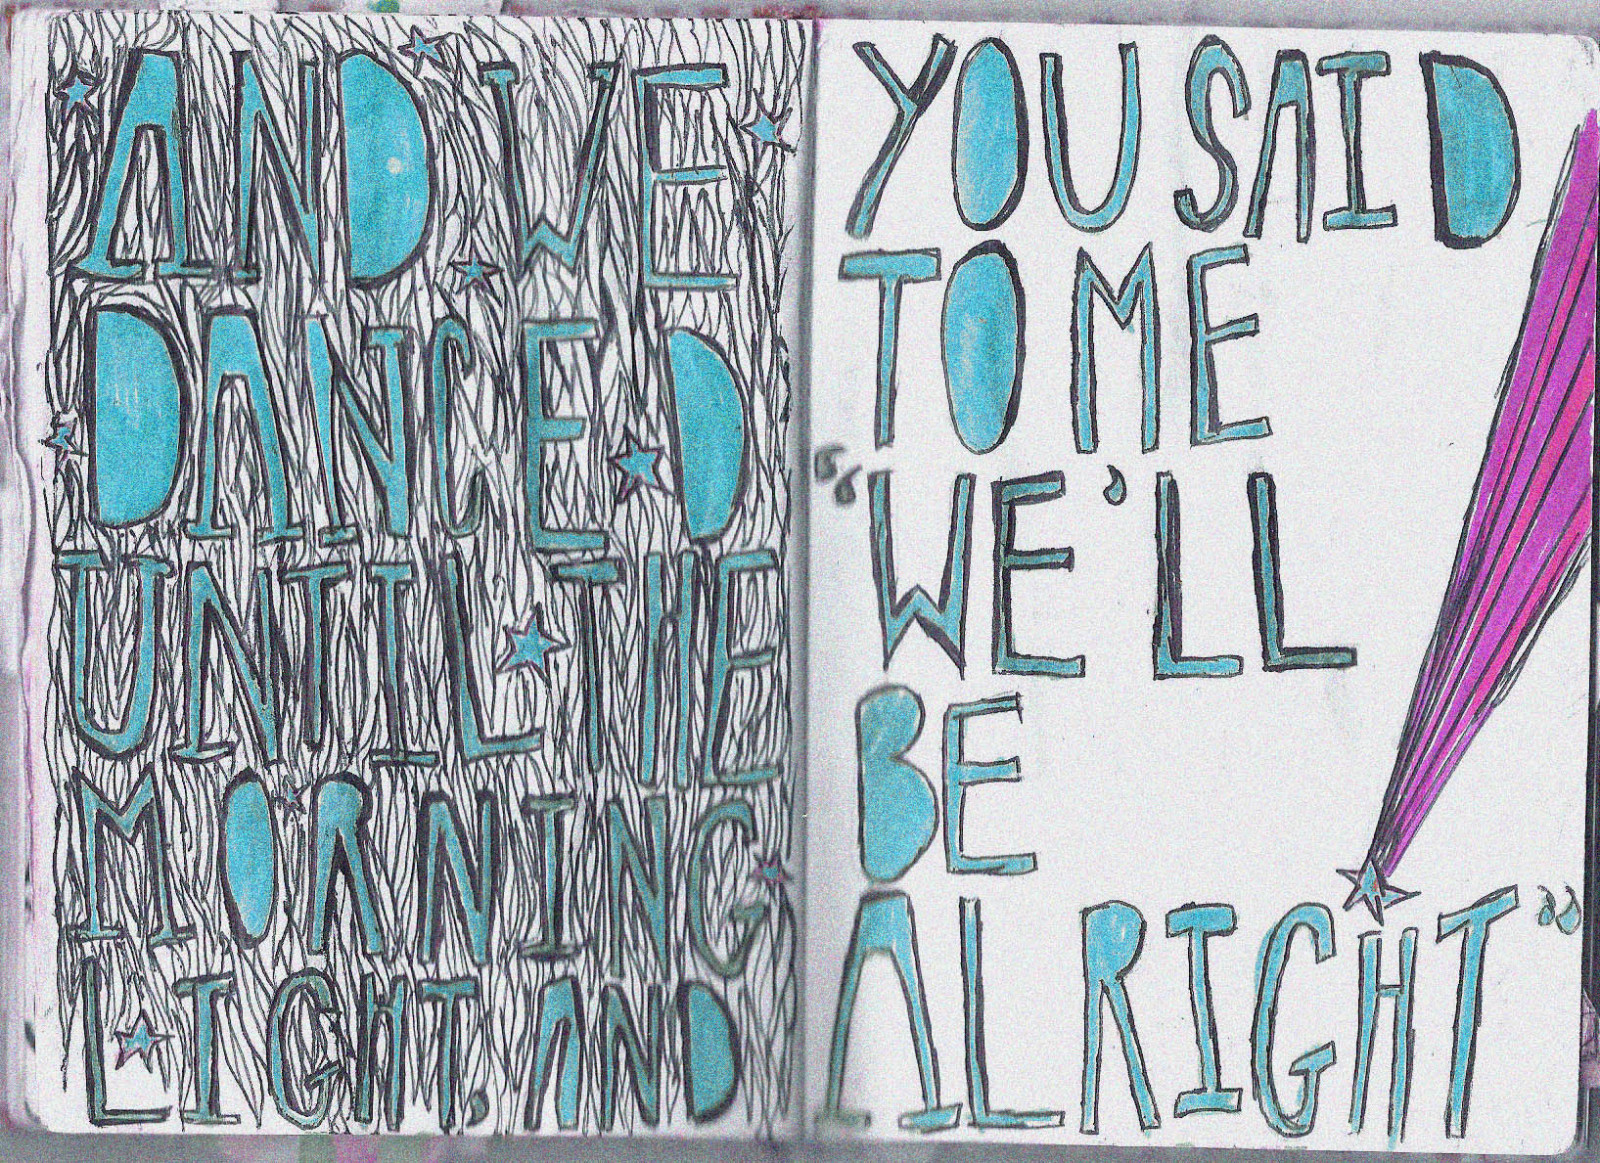 AND WE
DANCED
UNTIL THE
MORNING
LIGHT, AND
YOU SAID
TO ME
“WE'LL
BE
ALRIGHT”